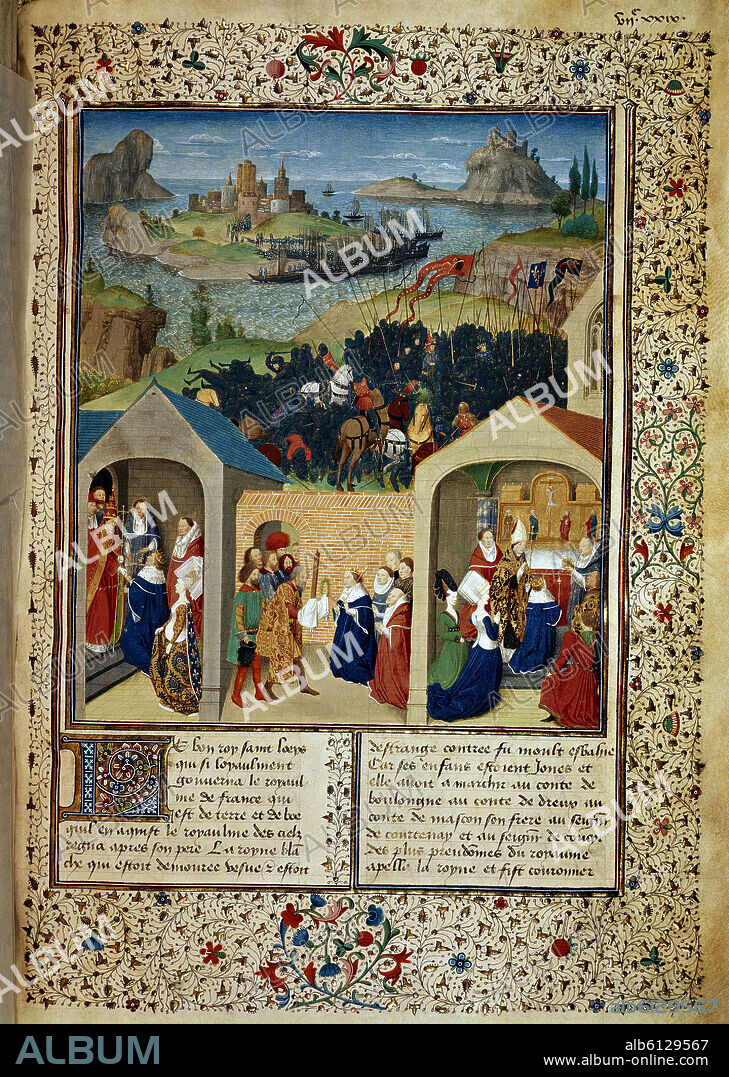 vijc xxix.
Le bon roy saint loeys
qui si loyaulment
gouverna le royaul
me de france qui
est de terre et de boe
quil en aquist le royaulme des cielz
regna apres son pere La royne blan
che qui estoit demouree vesve & estoit
destrange contree fu moult esbahie
Car ses enfans estoient Jones et
elle avoit a marchir au conte de
boulongne au conte de dreux au
conte de mascon son frere au seigr
de courtenay et au seignr de coucy
des plus preudomes du royaume
apella la royne et fist couronner
ALBUM
alb6129567
www.album-online.com